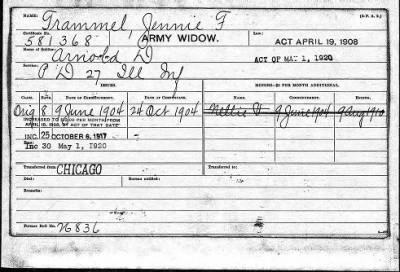 NAME: Trammel, Jennie F [D. P. A. B.]
Certificate No. 581368 ARMY WIDOW. ACT APRIL 19, 1908
Arnold D ACT OF MAY 1, 1920
Service: P D 27 Ill Inf
ISSUES. MINORS—$2 PER MONTH ADDITIONAL.
CLASS. RATE. DATE OF COMMENCEMENT. DATE OF CERTIFICATE.
Orig 8 9 June 1904 24 Oct 1904 Nettie 9 June 1904 9 Aug 1910
INCREASED TO $12.00 PER MONTH FROM
APRIL 19, 1908, BY ACT OF THAT DATE
INC. 25 OCTOBER 6, 1917
Inc 30 May 1, 1920
Transferred from CHICAGO Transferred to
Died: Bureau notified:
Remarks:
Former Roll No. 76836